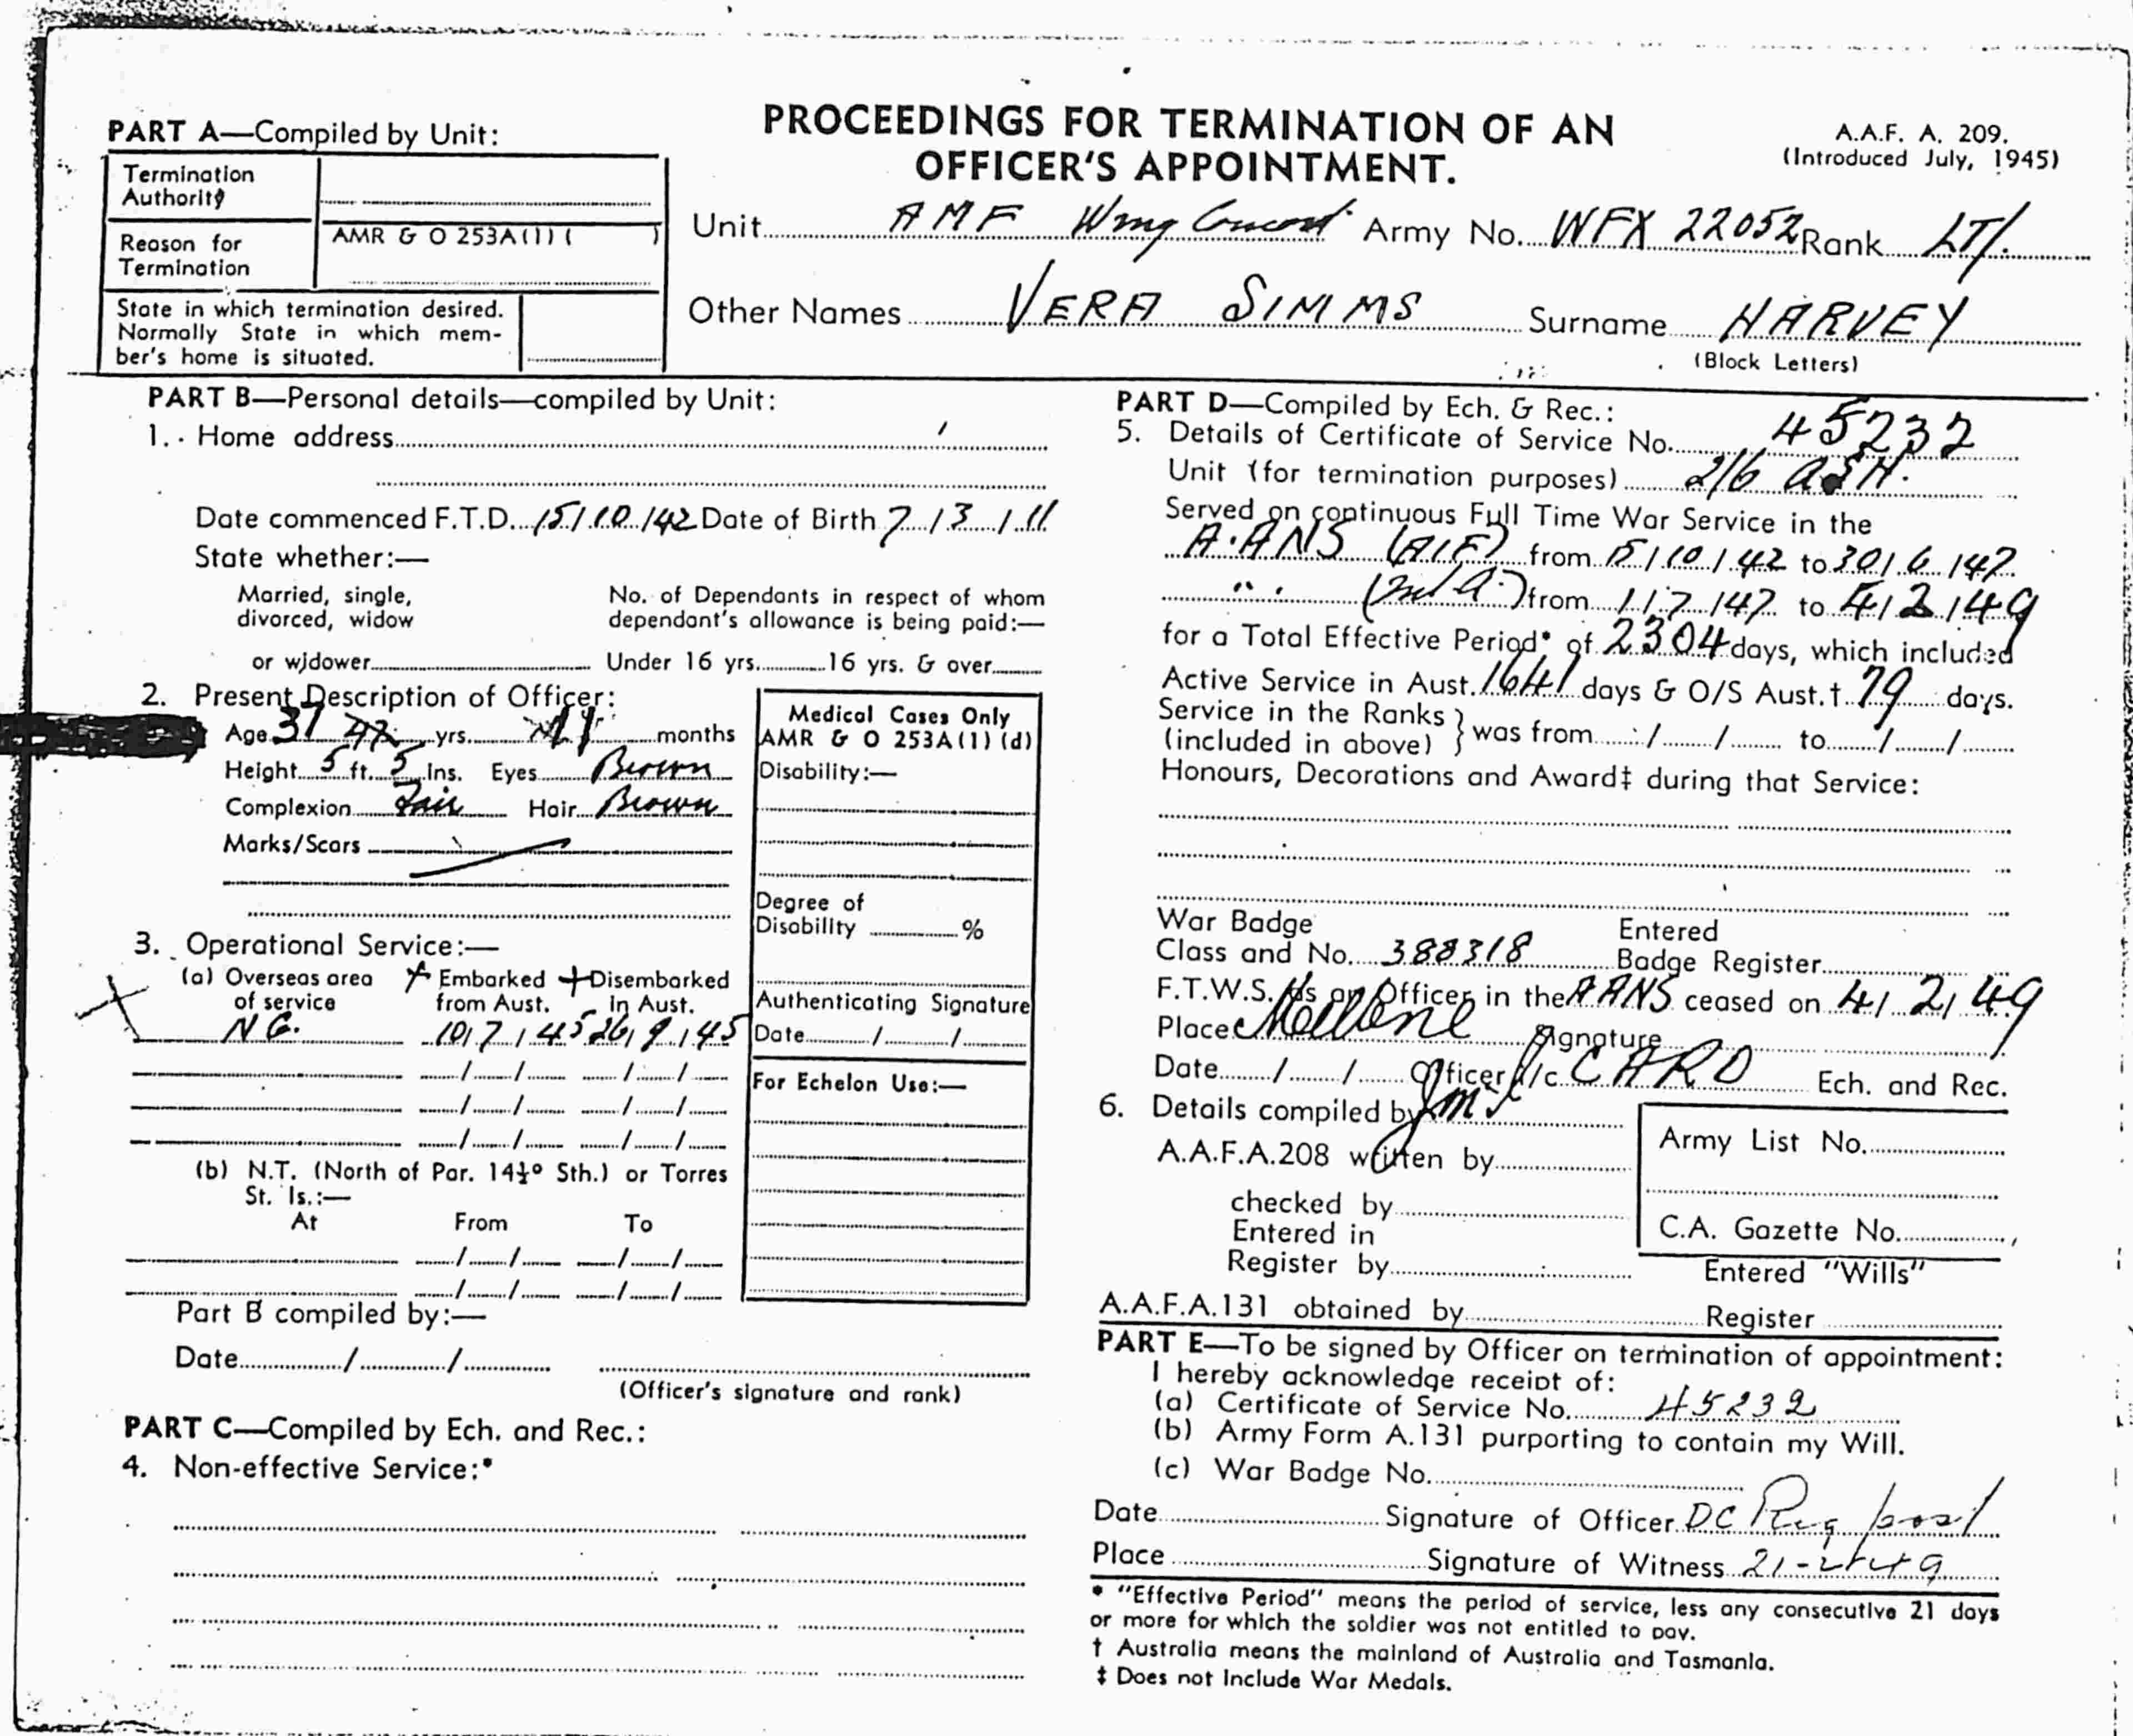 PROCEEDINGS FOR TERMINATION OF AN
OFFICER'S APPOINTMENT.
A.A.F. A. 209.
(Introduced July, 1945)
PART A—Compiled by Unit:
Termination
Authority
Reason for
Termination
AMR & O 253A(1) ( )
State in which termination desired.
Normally State in which mem-
ber's home is situated.
Unit AMF Army No. WFX 22052 Rank LT/.
Other Names VERA SIMMS Surname HARVEY
(Block Letters)
PART B—Personal details—compiled by Unit:
1. Home address
Date commenced F.T.D. 15/10/42 Date of Birth 7/3/11
State whether:—
Married, single,
divorced, widow
or widower
No. of Dependants in respect of whom
dependant's allowance is being paid:—
Under 16 yrs. 16 yrs. & over
2. Present Description of Officer:
Age 37 yrs. 11 months
Height 5 ft. 5 Ins. Eyes Brown
Complexion Fair Hair Brown
Marks/Scars
Medical Cases Only
AMR & O 253A(1) (d)
Disability:—
Degree of
Disability %
Authenticating Signature
Date / /
For Echelon Use:—
3. Operational Service:—
(a) Overseas area of service
Embarked from Aust.
Disembarked in Aust.
N.G. 10/7/45 26/9/45
/ / / /
/ / / /
/ / / /
(b) N.T. (North of Par. 14½° Sth.) or Torres
St. Is.:—
At From To
/ / / /
/ / / /
Part B compiled by:—
Date / /
(Officer's signature and rank)
PART C—Compiled by Ech. and Rec.:
4. Non-effective Service:*
PART D—Compiled by Ech. & Rec.:
5. Details of Certificate of Service No. 45232
Unit (for termination purposes) 2/6
Served on continuous Full Time War Service in the
A.ANS (AIF) from 15/10/42 to 30/6/47
from 1/7/47 to 4/2/49
for a Total Effective Period* of 2304 days, which included
Active Service in Aust. 1641 days & O/S Aust.† 79 days.
Service in the Ranks
(included in above) } was from / / to / /
Honours, Decorations and Award‡ during that Service:
War Badge
Class and No. 388318
Entered
Badge Register
F.T.W.S. as an Officer in the AANS ceased on 4/2/49
Place Signature
Date / / Officer i/c CARO Ech. and Rec.
6. Details compiled by
A.A.F.A.208 written by
checked by
Entered in
Register by
Army List No.
C.A. Gazette No.
Entered "Wills"
A.A.F.A.131 obtained by Register
PART E—To be signed by Officer on termination of appointment:
I hereby acknowledge receipt of:
(a) Certificate of Service No. 45232
(b) Army Form A.131 purporting to contain my Will.
(c) War Badge No.
Date Signature of Officer DC Reg post
Place Signature of Witness 21-2-49
* "Effective Period" means the period of service, less any consecutive 21 days
or more for which the soldier was not entitled to pay.
† Australia means the mainland of Australia and Tasmania.
‡ Does not Include War Medals.